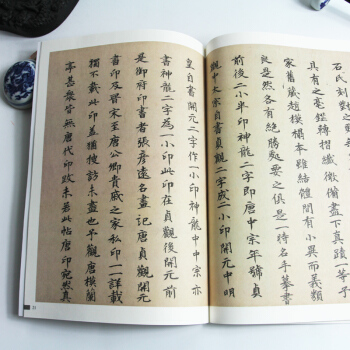 石氏刻對之
具有之毫鋩轉摺纖微備盡下
家舊藏趙模搨本雖結體間有小異而義類
良是然各有絕勝處要之俱是一時名手摹書
前後二小半印神龍二字即唐中宗年號貞
觀中太宗自書貞觀二字成二小印開元中明
皇自書開元二字作一小印神龍中中宗亦
書神龍二字為一小印此印在貞觀後開元前
是御府印書者張彥遠名畫記唐貞觀開元
書印及晉宋至唐公卿貴戚之家私印一一詳載
獨不載此印蓋猶搜訪未盡也予觀唐模蘭
亭甚衆皆無唐代印跋未若此帖唐印宛然真